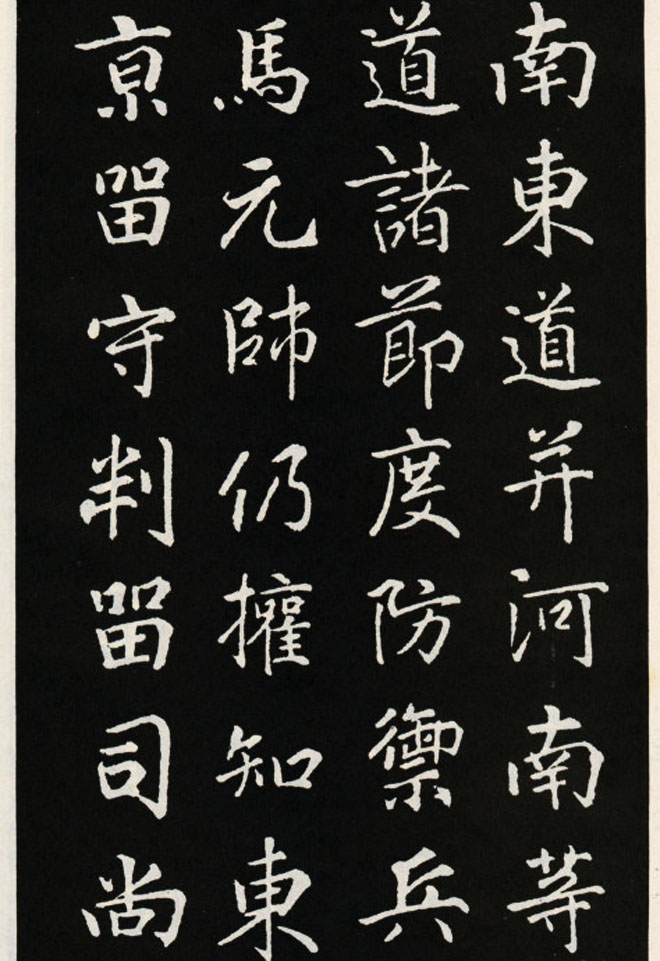 南東道并河南等
道諸節度防禦兵
馬元帥仍權知東
京留守判留司尚